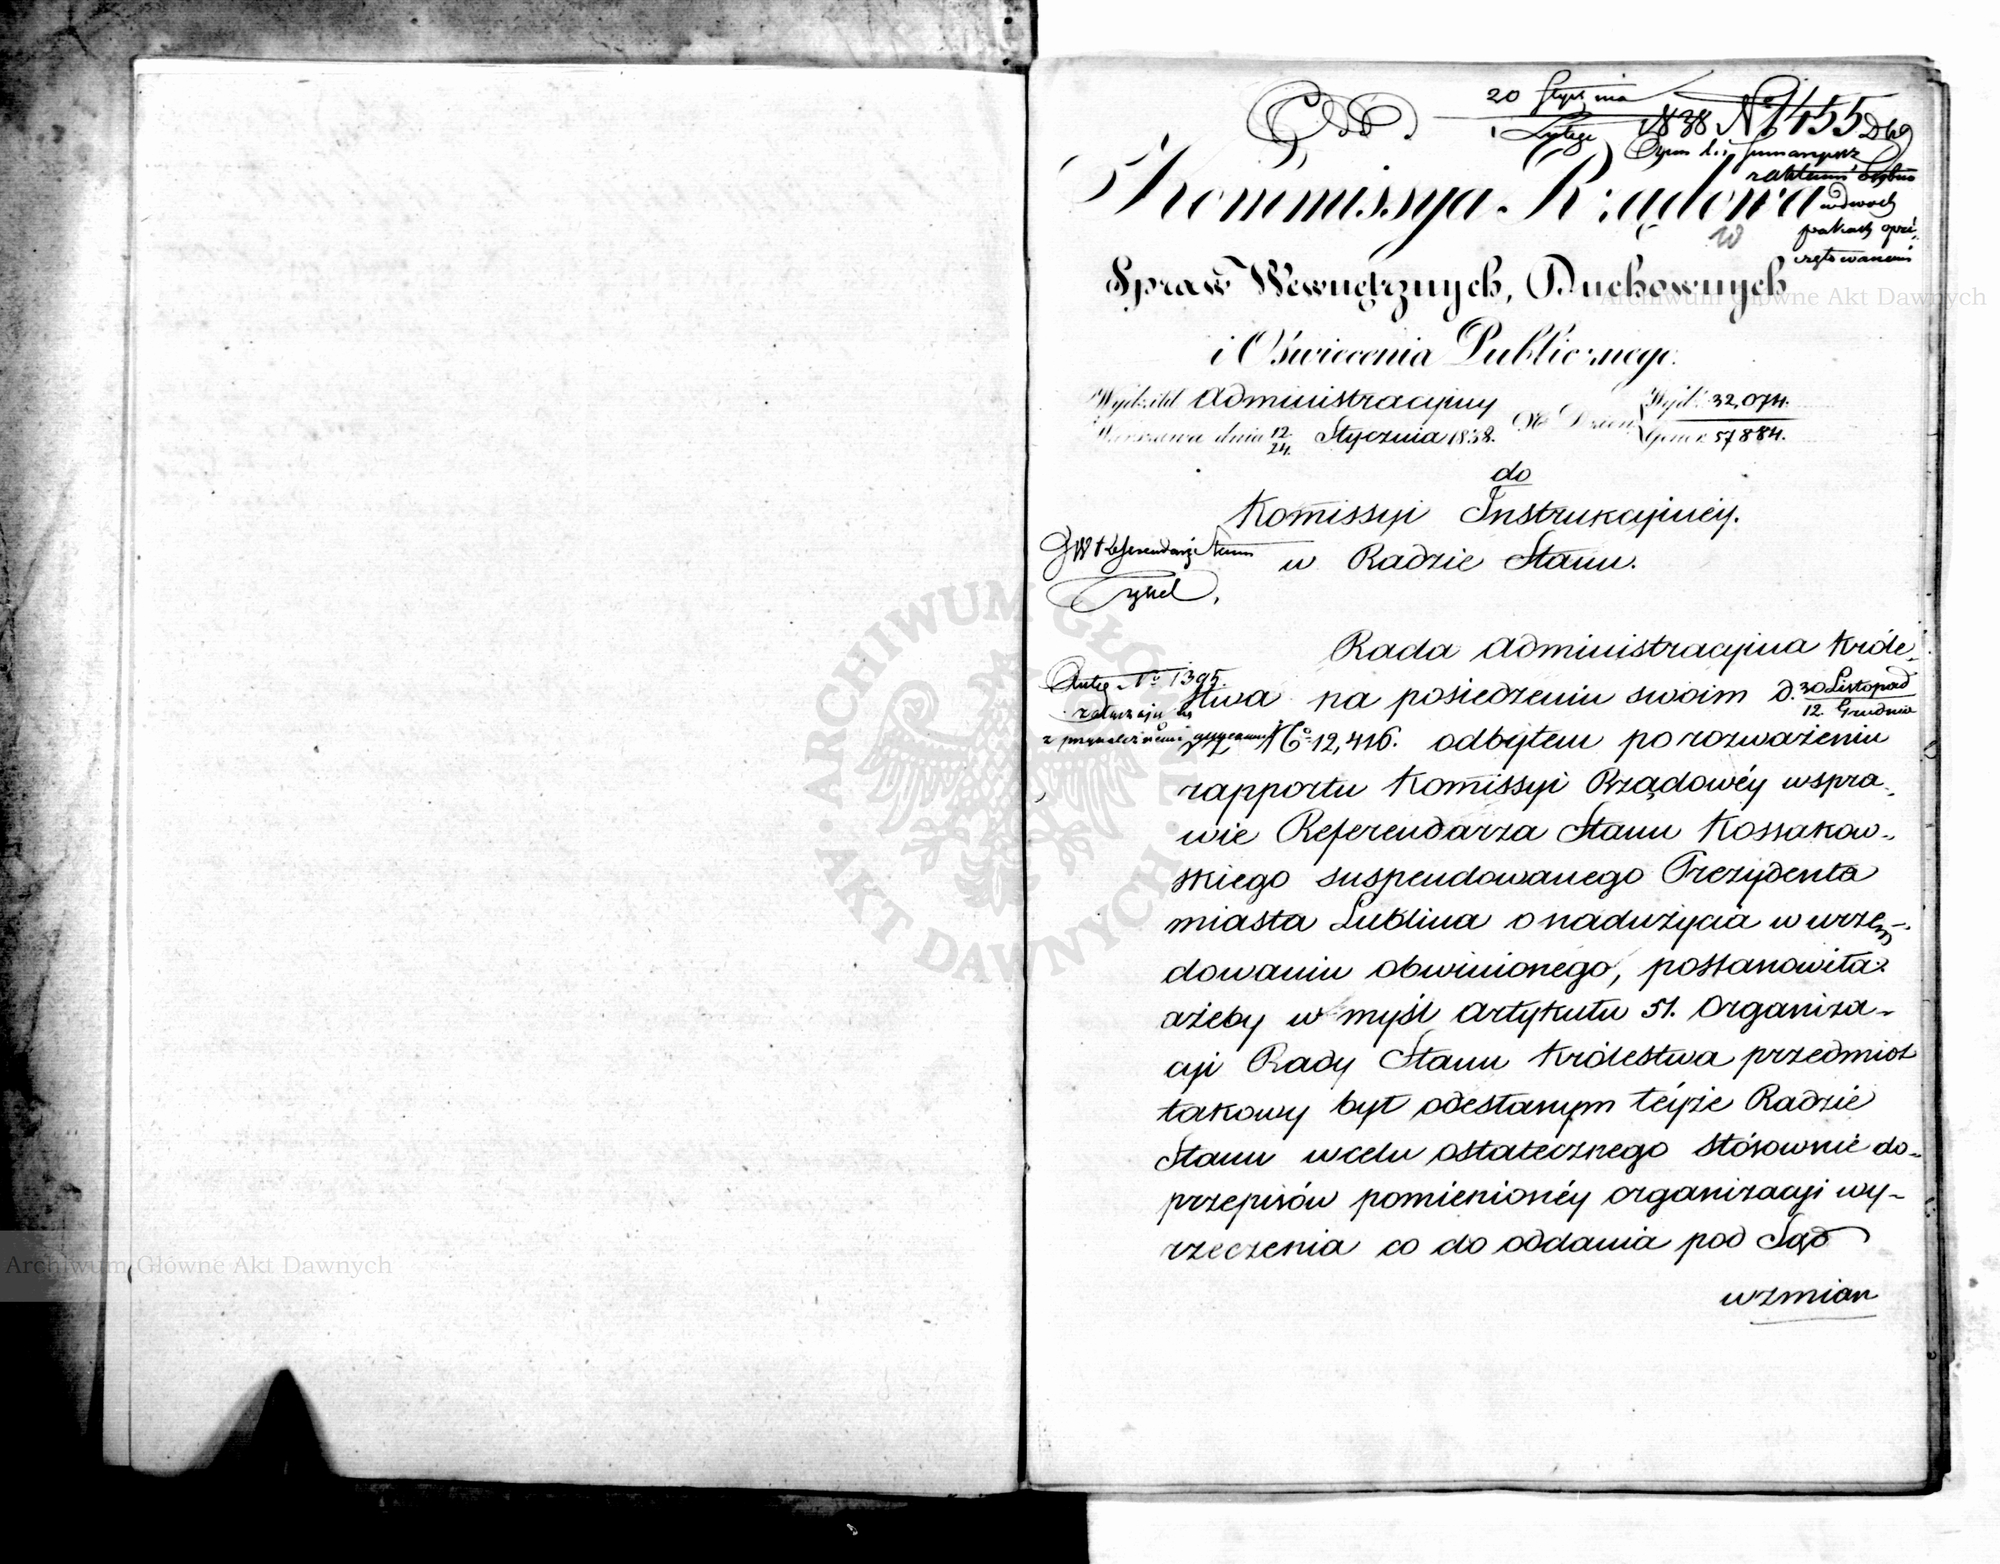 20 Stycznia
1 Lutego 1838 N 1455
Kommissya Rządowa
w dwóch
pakach opie-
czętowanemi
Spraw Wewnętrznych, Duchownych
i Oświecenia Publicznego.
Wydział Administracyjny
Warszawa dnia 12/24. Stycznia 1838.
Nr Dzien: Wydz: 32,074.
Gener: 57884.
do
Komissyi Instrukcyjnéy.
w Radzie Stanu.
JW Referendarz Stanu
Rada Administracyjna Króle-
stwa na posiedzeniu swoim d. 30 Listopad
12. Grudnia
No 1395.
No 12,416. odbytem po rozważeniu
rapportu Komissyi Rządowéy wspra-
wie Referendarza Stanu Kossakow-
skiego suspendowanego Prezydenta
miasta Lublina o nadużycia w urzę-
dowaniu obwinionego, postanowiła:
ażeby w myśl Artykułu 51. Organiza-
cji Rady Stanu Królestwa przedmiot
takowy był odesłanym téyże Radzie
Stanu wcelu ostatecznego stósownie do-
przepisów pomienionéy organizacji wy-
rzeczenia co do oddania pod Sąd
wzmian
Archiwum Główne Akt Dawnych
Archiwum Główne Akt Dawnych
ARCHIWUM GŁÓWNE AKT DAWNYCH